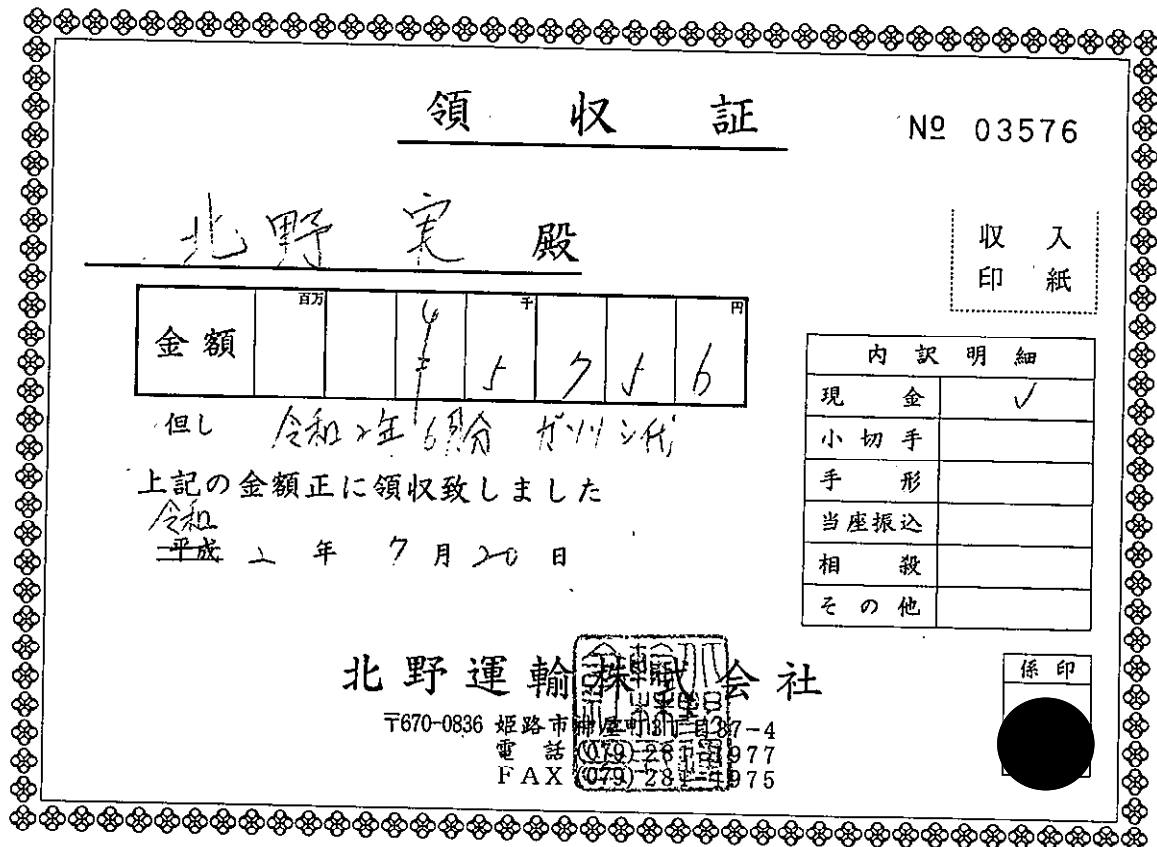 領収証
№ 03576
北野 実 殿
収入
印紙
金額 百万 千 円
¥ 5 7 5 6
但し 令和2年6月分 ガソリン代
上記の金額正に領収致しました
令和
平成 2 年 7 月 20 日
内訳明細
現金 ✓
小切手
手形
当座振込
相殺
その他
北野運輸株式会社
〒670-0836 姫路市神屋町3丁目87-4
電話(079)281-1977
FAX(079)281-1975
係印